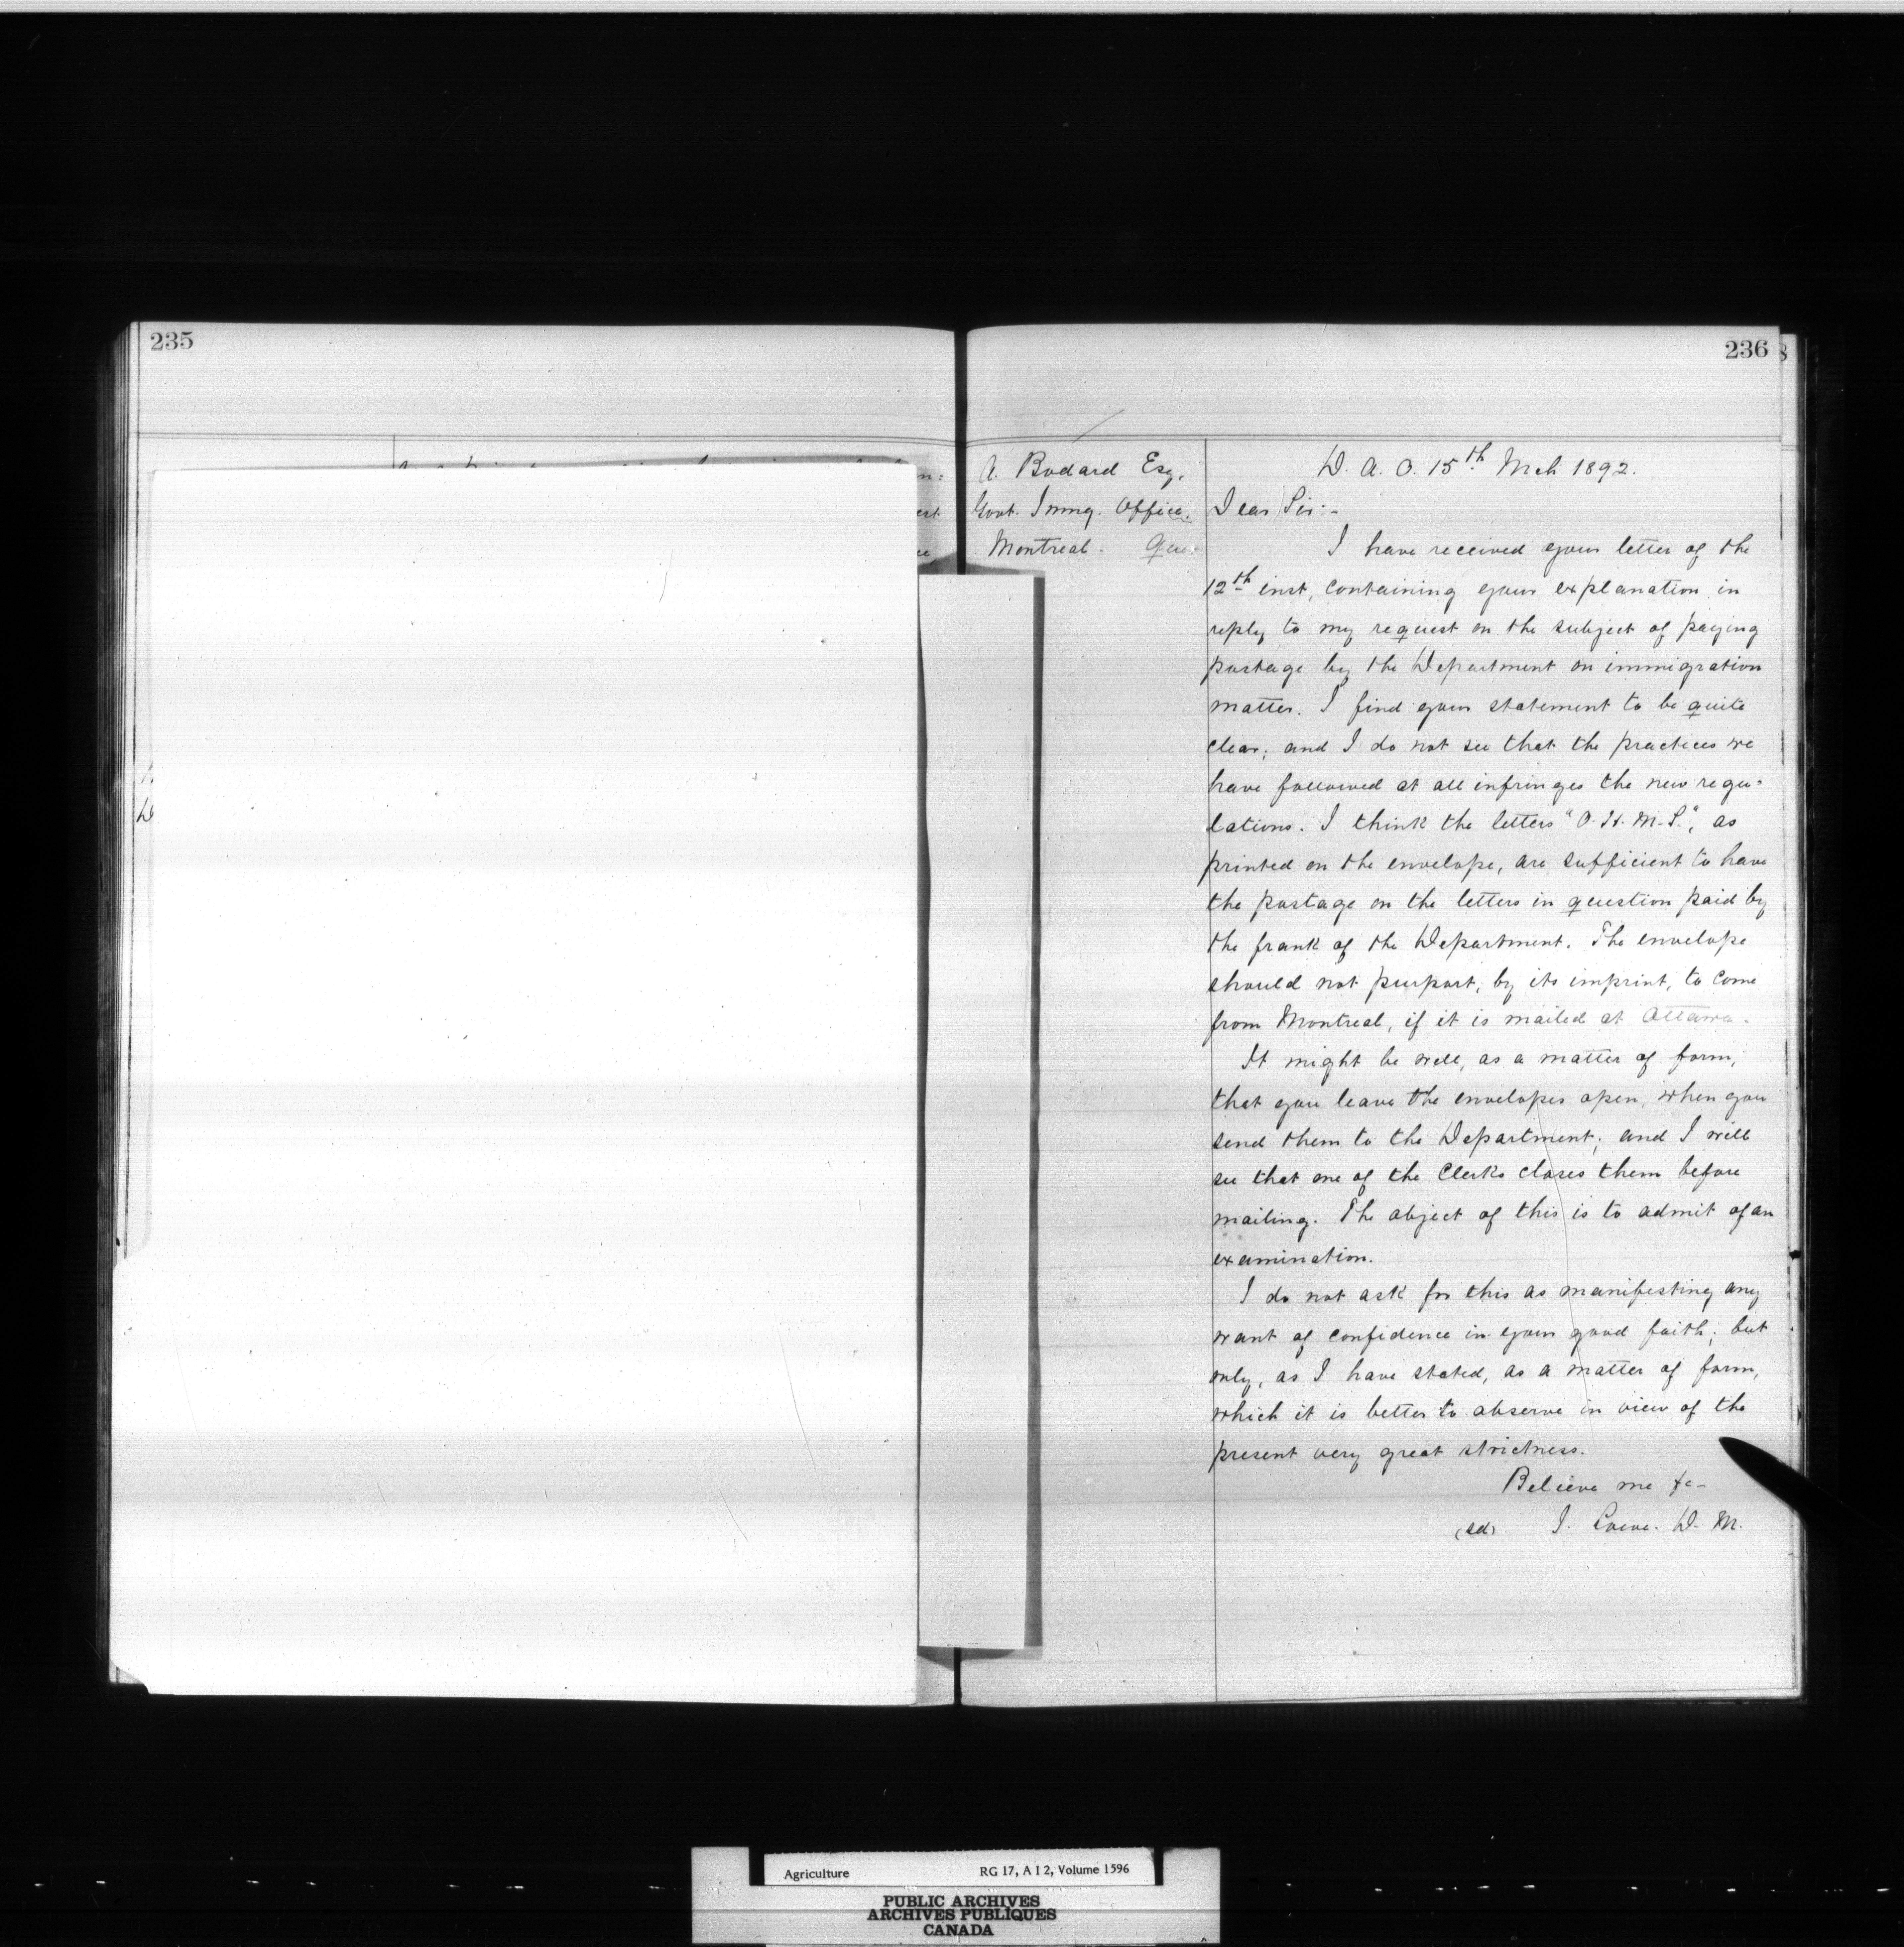 235
236
A. Bodard Esq.
Govt. Immg. Office.
Montreal. Que.
D. A. O. 15th Mch 1892.
Dear Sir:-
I have received your letter of the
12th inst, containing your explanation in
reply to my request on the subject of paying
postage by the Department on immigration
matter. I find your statement to be quite
clear; and I do not see that the practices we
have followed at all infringes the new regu-
lations. I think the letters "O. H. M. S.", as
printed on the envelope, are sufficient to have
the postage on the letters in question paid by
the frank of the Department. The envelope
should not purport, by its imprint, to come
from Montreal, if it is mailed at Ottawa.
It might be well, as a matter of form,
that you leave the envelopes open, when you
send them to the Department; and I will
see that one of the Clerks closes them before
mailing. The object of this is to admit of an
examination.
I do not ask for this as manifesting any
want of confidence in your good faith; but
only, as I have stated, as a matter of form,
which it is better to observe in view of the
present very great strictness.
Believe me &c-
(sd) J. Lowe. D. M.
Agriculture RG 17, A I 2, Volume 1596
PUBLIC ARCHIVES
ARCHIVES PUBLIQUES
CANADA